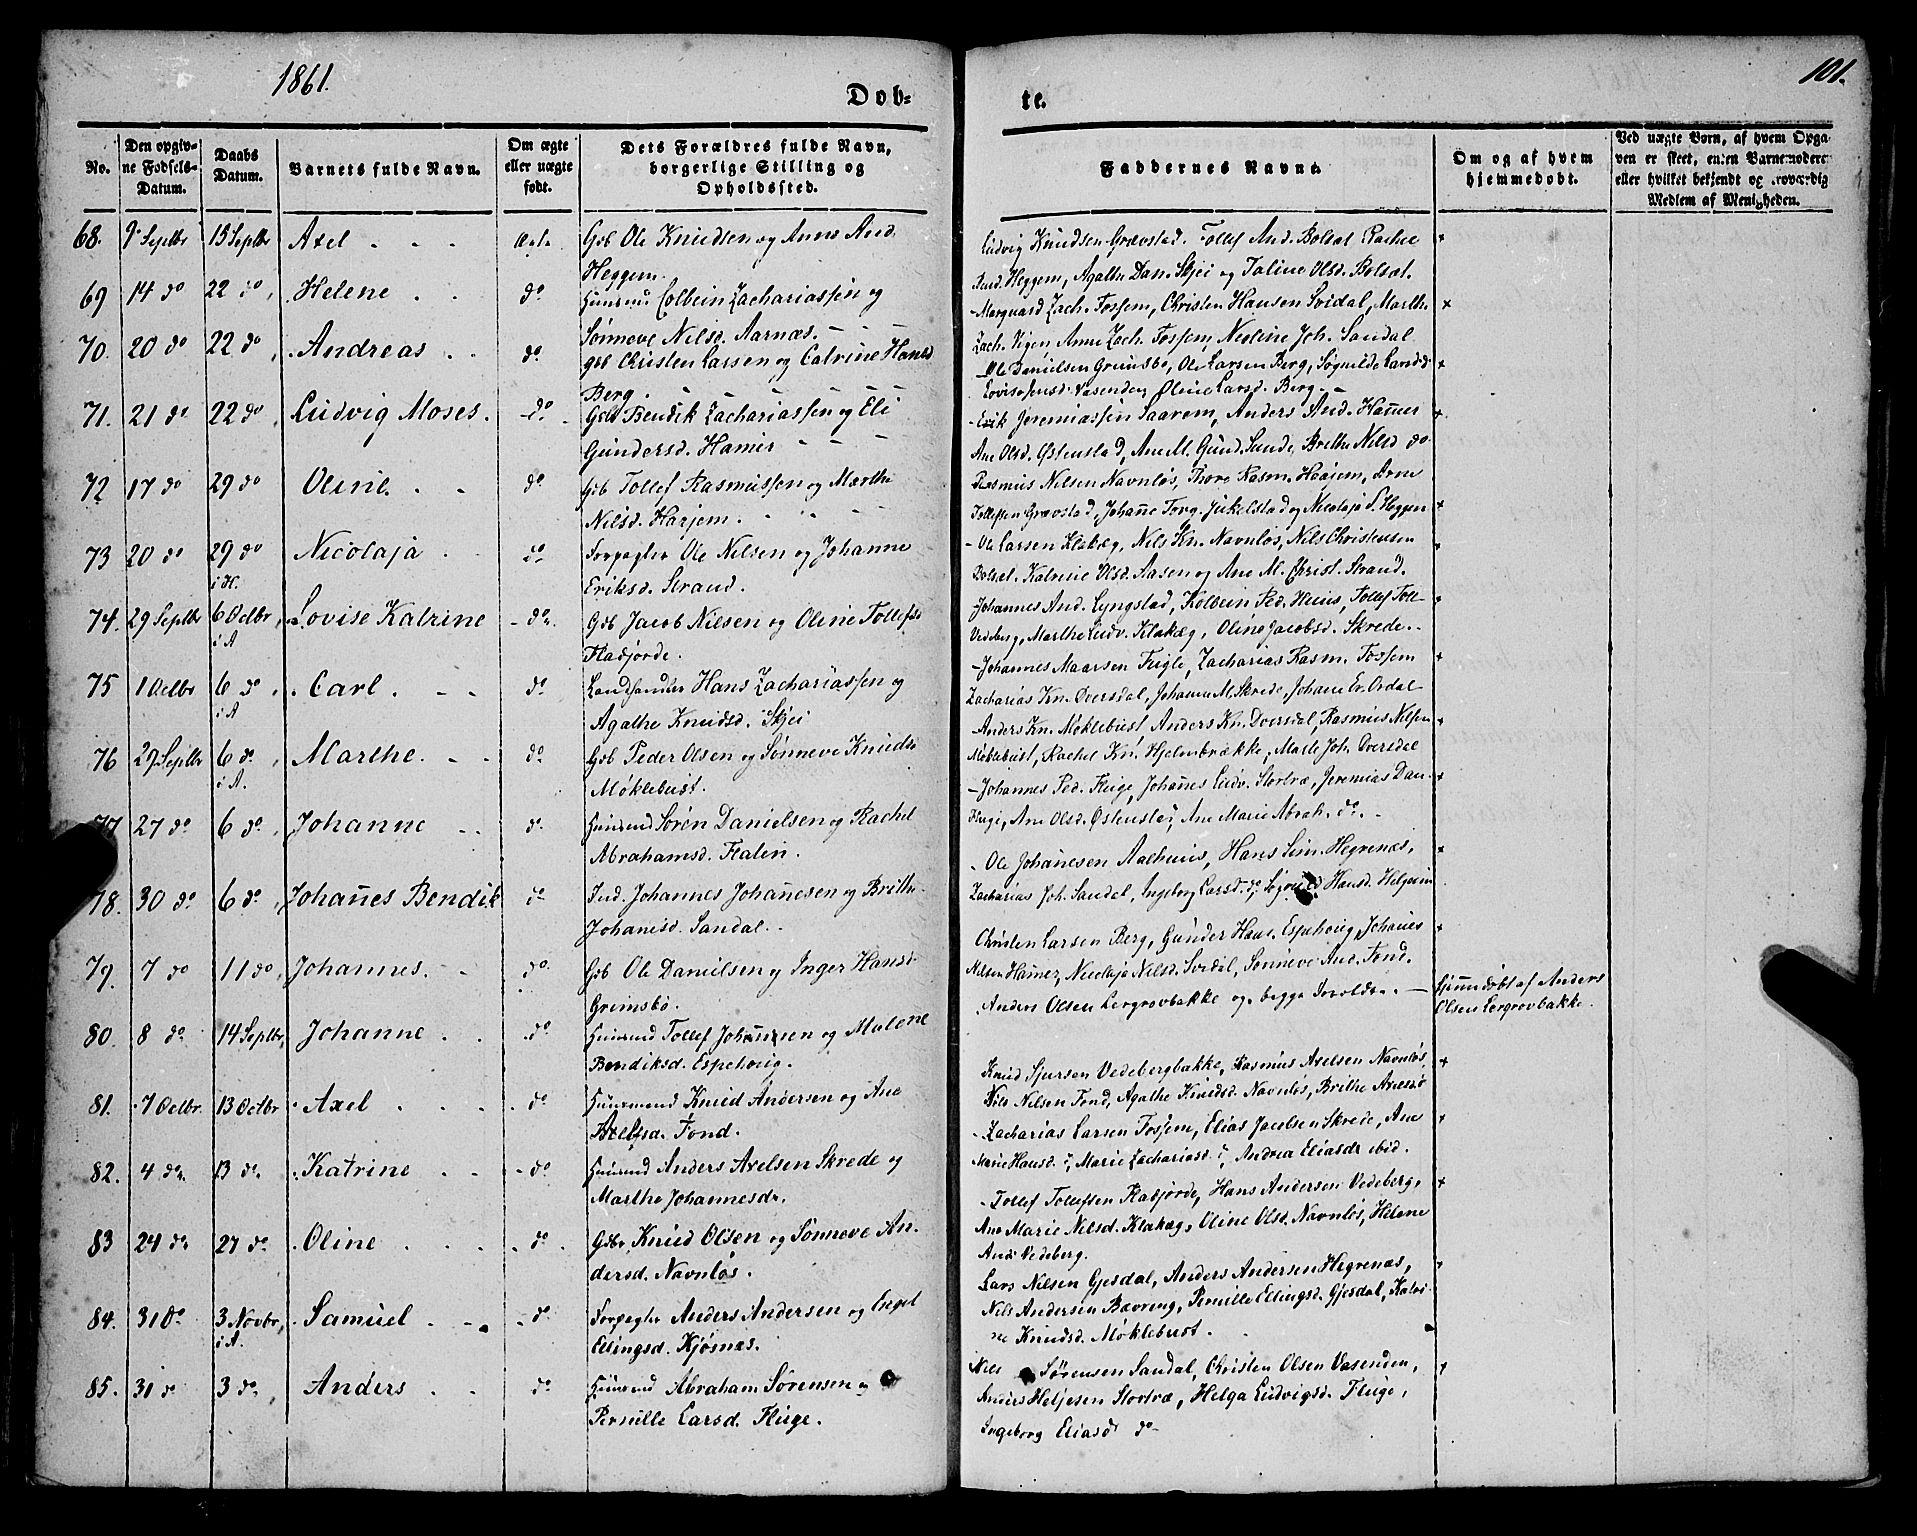 1861.
101.
Døb-
te.
No.
Den opgiv-
ne Fødsels-
Datum.
Daabs
Datum.
Barnets fulde Navn.
Om ægte
eller uægte
født.
Dets Forældres fulde Navn,
borgerlige Stilling og
Opholdssted.
Faddernes Navne.
Om og af hvem
hjemmedøbt.
Ved uægte Børn, af hvem Opga-
ven er skeet, enten Barnemodere
eller hvilket bekjendt og troværdig
Medlem af Menigheden.
68. 9 Septbr 15 Septbr Axel Gbr Ole Knudsen og Anne And.
Heggem.
Ludvig Knudsen Grøvstad. Tollef And. Bolsæt Rachel
And. Heggem, Agathe Dan. Skjei og Taline Olsd. Bolsæt.
69 14 do 22 do Helene do Huusmd Colbein Zachariassen og
Sønneve Nilsd. Aarnæs.
Marquard Zach. Fossem, Christen Hansen Svidal, Marthe
Zach. Vigen, Anne Zach. Fossem, Nicoline Joh. Sandal
70. 20 do 22 do Andreas do Gbr Christen Larsen og Catrine Hansd
Berg.
Ole Danielsen Grimsbø, Ole Larsen Berg, Sygnilde Larsd. do
Lovise Jensd. Vasenden, Oline Larsd. Berg.
71. 21 do 22 do Ludvig Moses. do Gbr Bendik Zachariassen og Eli
Gundersd. Hamer
Erik Jeremiassen Saarem, Anders And. Hamer
Ane Olsd. Østenstad, Ane M. Gund. Sunde, Brithe Nilsd do
72 17 do 29 do Oline. do Gbr Tollef Rasmussen og Marthe
Nilsd. Harjem.
Rasmus Nilsen Navnløs, Thore Rasm. Harjem, Arne
Tollefsen Grøvstad, Johanne Torg. Jukelstad og Nicolaja S. Heggem
73 20 do 29 do Nicolaja do Forpagter Ole Nilsen og Johanne
i H.
Eriksd. Strand.
Ole Larsen Klakæg, Nils Kn. Navnløs, Nils Christensen
Bolsæt. Katrine Olsd. Aasen og Ane M. Christ. Strand.
74. 29 Septbr 6 Octbr Lovise Katrine do Gbr Jacob Nilsen og Oline Tollefsd
i A
Fladjorde.
Johannes And. Lyngstad, Kolbein Ped. Huus, Tollef Toll-
Vedeberg, Marthe Ludv. Klakæg, Oline Jacobsd. Skrede.
75 1 Octbr 6 do Carl. do Landhandler Hans Zachariassen og
i A
Agathe Knudsd. Skjei
Johannes Maarsen Flugie, Zacharias Rasm. Fossem
Zacharias Kn. Oversdal, Johanne M. Skrede, Johane Er. Ordal
76 29 Septbr 6 do Marthe. do Gbr Peder Olsen og Sønneve Knudsd.
i A.
Møklebust.
Anders Kn. Møklebust, Anders Kn. Oversdal, Rasmus Nilsen
Møklebust, Rachel Kn. Hjelmbrække, Malle Joh. Oversdal
77 27 do 6 do Johanne do Huusmd Søren Danielsen og Rachel
Abrahamsd. Flatin.
Johannes Ped. Fluge, Johannes Ludv. Stortræ, Jeremias Dan-
Flugi, Ane Olsd. Østensta, Ane Marie Abrah. do.
78. 30 do 6 do Johannes Bendik do Ind. Johannes Johannesen og Brithe
Johanisd. Sandal.
Ole Johanesen Aalhuus, Hans Sim. Hegrenæs,
Zacharias Joh. Sandal, Ingeborg Larsd. do, Hansd. Helgeim
79. 7 do 11 do Johannes. do Gbr Ole Danielsen og Inger Hansd.
Grimsbø.
Christen Larsen Berg, Gunder Hans. Espehovig, Johannes
Nilsen Hamer, Nicolaja Nilsd. Svidal, Sønneve And. Fond.
80. 8 do 14 Septbr Johanne do Huusmd Tollef Johannesen og Malene
Bendiksd. Espehovig.
Anders Olsen Lergrovbakke og begge Forældre.
Hjemmedøbt af Anders
Olsen Lergrovbakke.
81. 7 Octbr. 13 Octbr Axel do Huusmand Knud Andersen og Ane
Axelsd. Fond.
Knud Sjursen Vedebergbakke, Rasmus Axelsen Navnløs,
Nils Nilsen Fond, Agathe Knudsd. Navnløs, Brithe Axelsd
82. 4 do 13 do Katrine do Huusmd Anders Axelsen Skrede og
Marthe Johannesdr.
Zacharias Larsen Fossem, Elias Jacobsen Skrede, Ane
Marie Hansd. i, Marie Zachariasd. i, Andrea Eliasdr ibid.
83 24 do 27 do Oline do Gbr. Knud Olsen og Sønneve An-
dersd. Navnløs.
Tollef Tollefsen Fladjorde, Hans Andersen Vedeberg,
Ane Marie Nilsd. Klakæg, Oline Olsd. Navnløs, Helene
Ands Vedeberg.
84. 31 Do 3 Novbr. Samuel do Forpagter Anders Andersen og Engel
i A.
Ellingsd. Kjøsnæs.
Lars Nilsen Gjesdal, Anders Andersen Hegrenæs,
Nils Andersen Bavreng, Pernille Ellingsd. Gjesdal, Katri-
ne Knudsd. Møklebust.
85. 31 do 3 do Anders do Huusmd Abraham Sørensen og
Pernille Larsd. Fluge.
Nils Sørensen Sandal, Christen Olsen Vasenden,
Anders Heljesen Stortræ, Helga Ludvigsd. Fluge,
Ingeborg Eliasd do